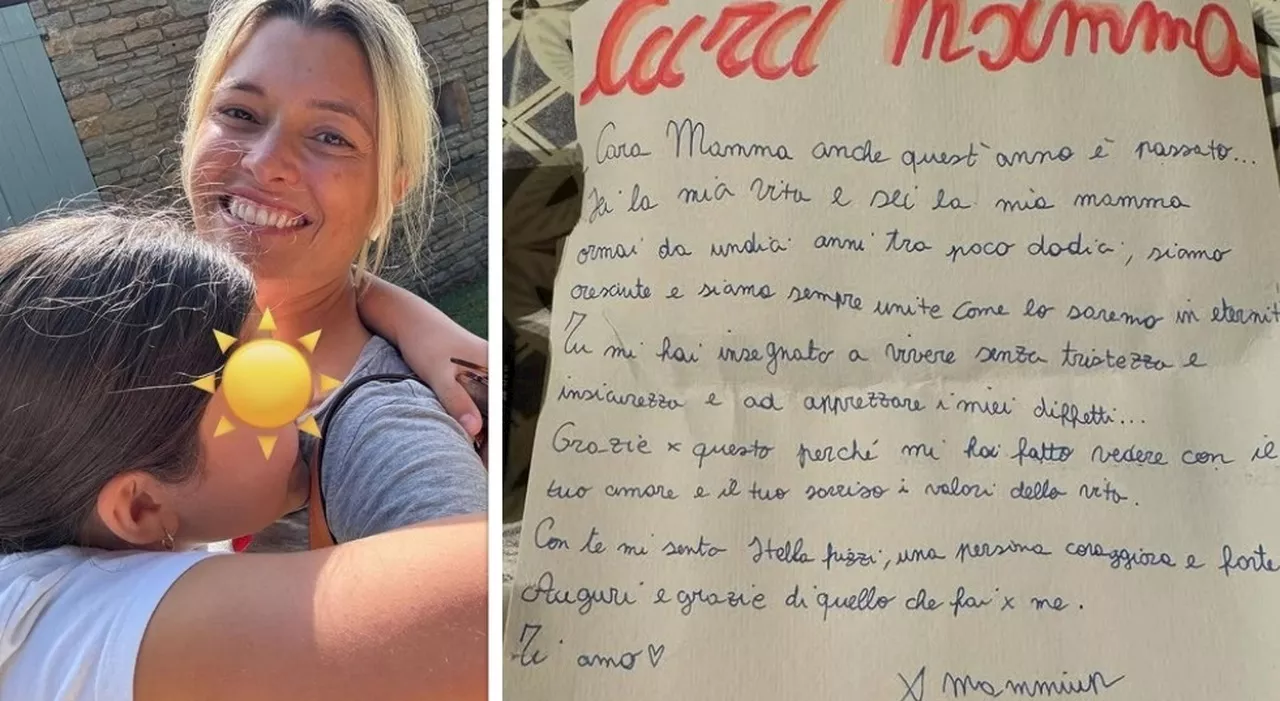 Cara Mamma
Cara Mamma anche quest'anno è passato...
Sei la mia vita e sei la mia mamma
ormai da undici anni tra poco dodici, siamo
cresciute e siamo sempre unite come lo saremo in eternit
Tu mi hai insegnato a vivere senza tristezza e
insicurezza e ad apprezzare i miei diffetti...
Grazie x questo perché mi hai fatto vedere con il
tuo amore e il tuo sorriso i valori della vita.
Con te mi sento Stella fuzzi, una persona coraggiosa e forte
Auguri e grazie di quello che fai x me.
Ti amo♡